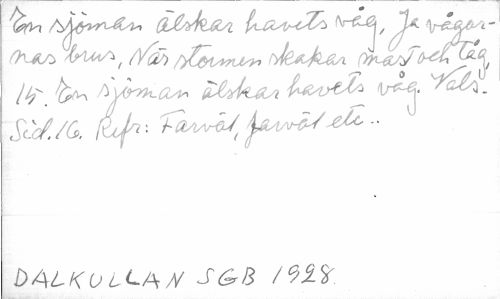 En sjöman älskar havets våg, Ja vågor-
nas brus, När stormen skakar mast och tåg,
15. En sjöman älskar havets våg. Vals.
Sid. 16. Refr: Farväl, farväl etc..
DALKULLAN SGB 1928.